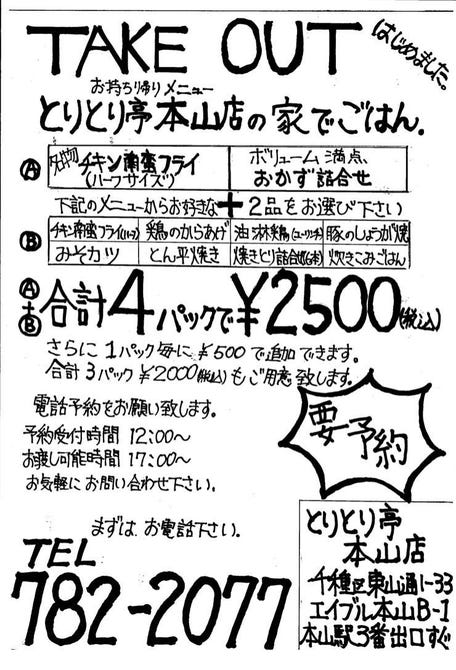 TAKE OUT
はじめました。
お持ち帰りメニュー
とりとり亭本山店の家でごはん.
Ⓐ 名物 チキン南蛮フライ (ハーフサイズ) ボリューム満点、おかず詰合せ
下記のメニューからお好きな+2品をお選び下さい
Ⓑ チキン南蛮フライ(ハーフ) 鶏のからあげ 油淋鶏(ユーリンチ) 豚のしょうが焼
みそカツ とん平焼き 焼きとり詰合せ(6本) 炊きこみごはん
Ⓐ+Ⓑ 合計4パックで¥2500(税込)
さらに1パック毎に¥500で追加できます。
合計3パック¥2000(税込)もご用意致します。
電話予約をお願い致します。
予約受付時間 12:00〜
お渡し可能時間 17:00〜
お気軽にお問い合わせ下さい。
要予約
まずはお電話下さい。
TEL
782-2077
とりとり亭
本山店
千種区東山通1-33
エイブル本山B-1
本山駅3番出口すぐ